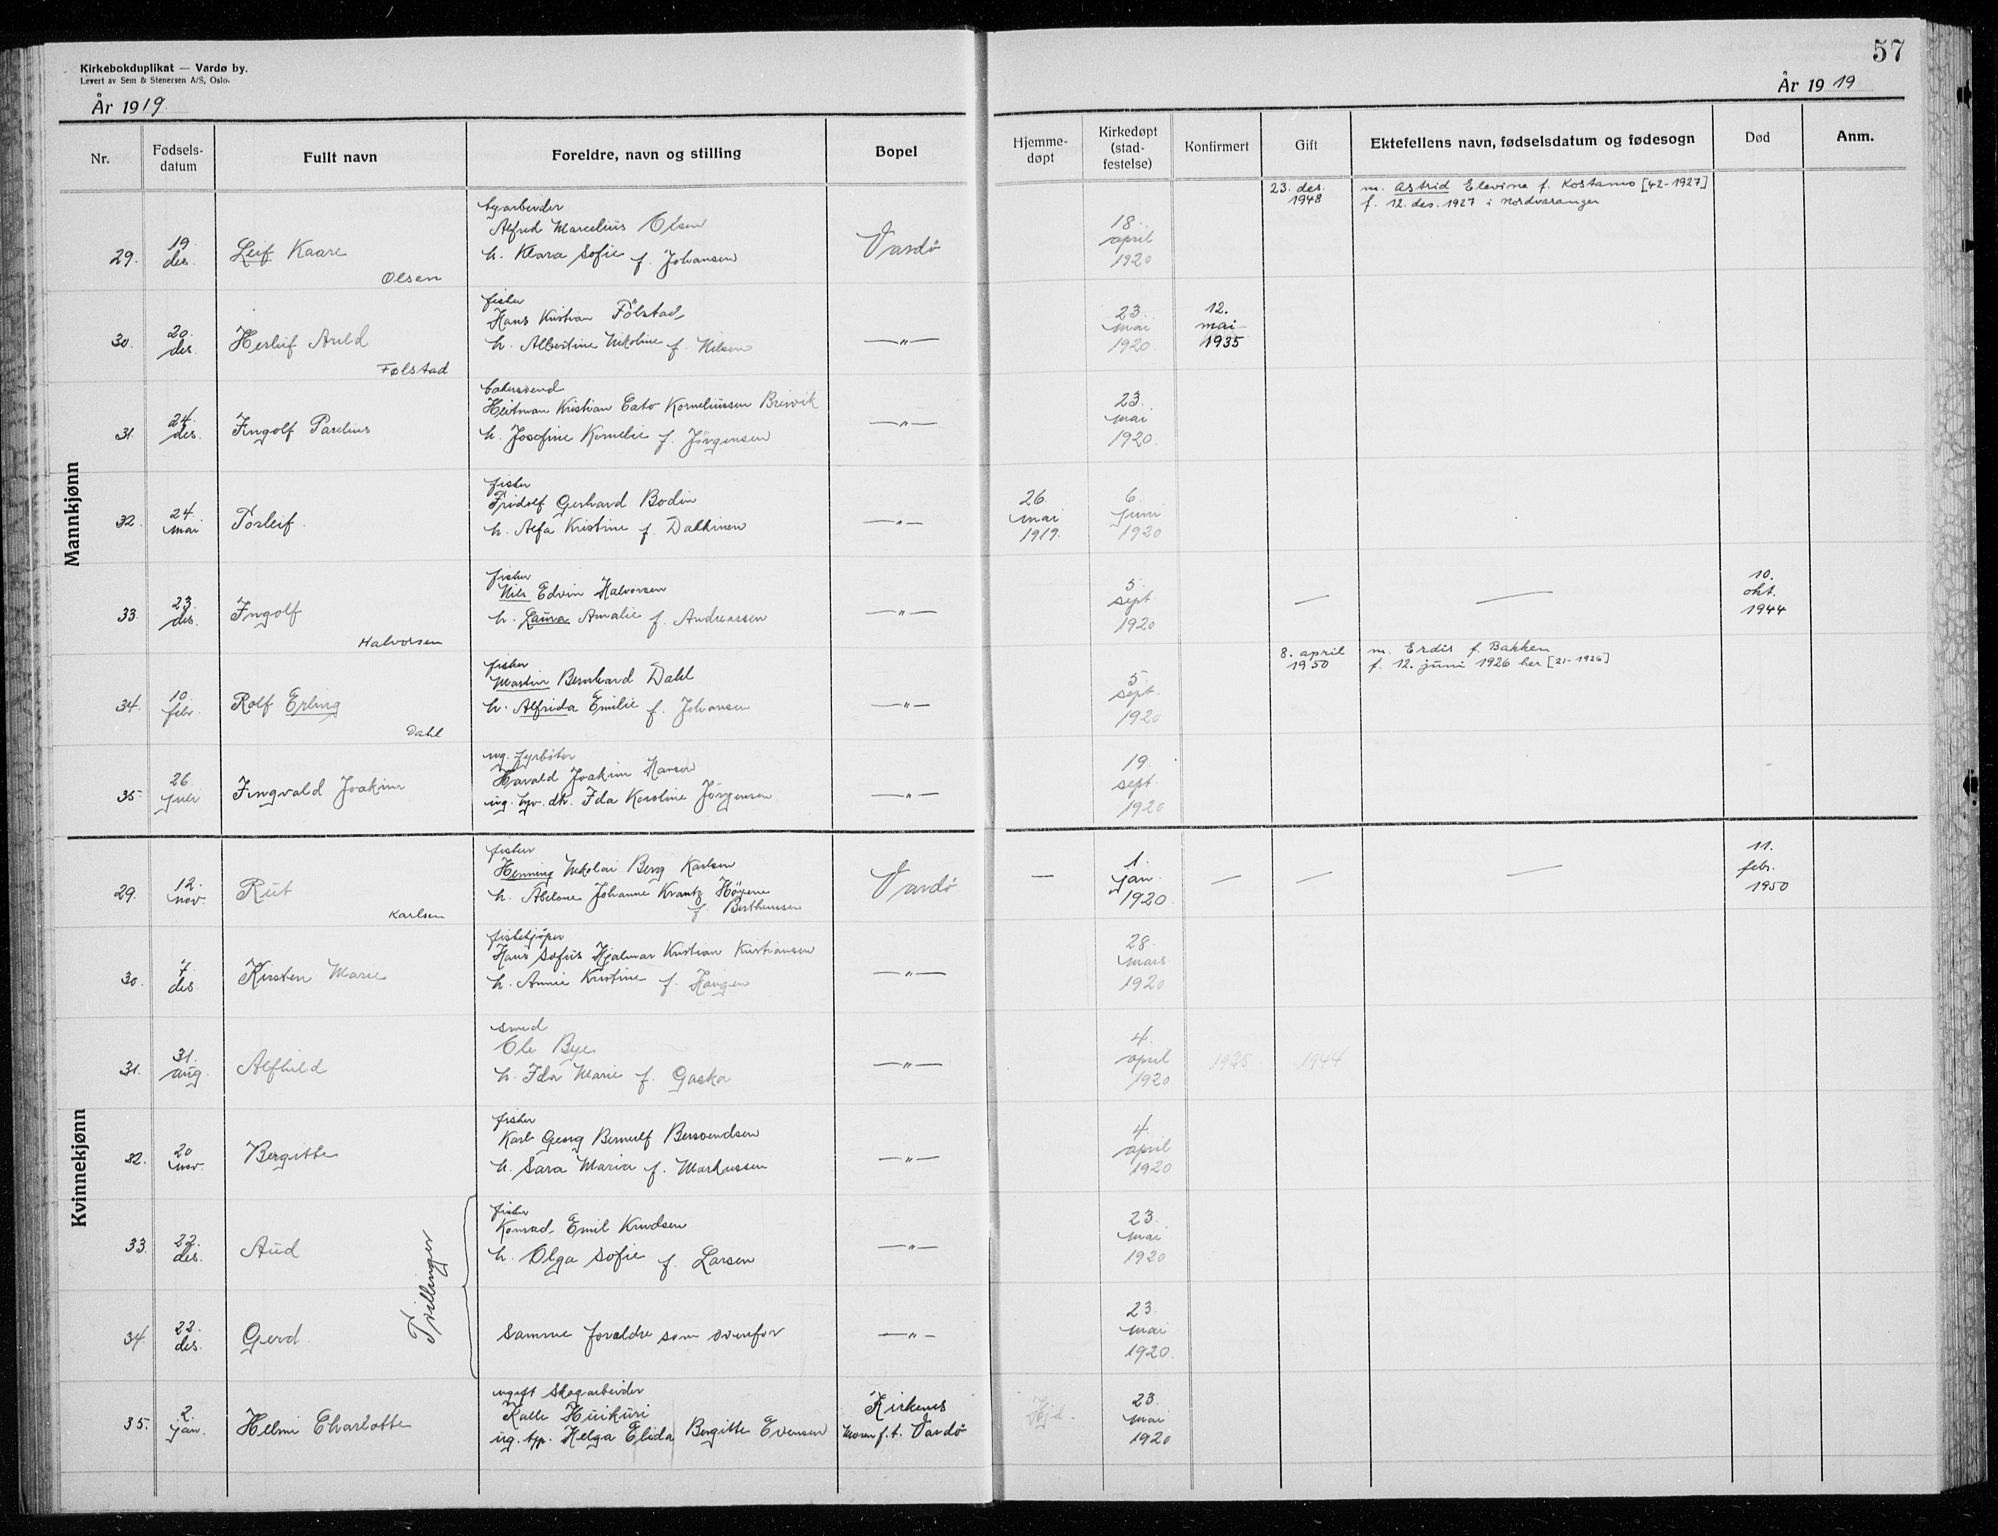 57
Kirkebokduplikat — Vardø by.
Levert av Sem & Stenersen A/S, Oslo.
År 1919.
År 1919
Nr.
Fødsels-
datum
Fullt navn
Foreldre, navn og stilling
Bopel
Hjemme-
døpt
Kirkedøpt
(stad-
festelse)
Konfirmert
Gift
Ektefellens navn, fødselsdatum og fødesogn
Død
Anm.
Mannkjønn
29.
19.
des.
Leif Kaare
Olsen
byarbeider
Alfred Marcelius Olsen
h. Klara Sofie f. Johansen
Vardø
18.
april
1920
23. des.
1948
m. Astrid Elevine f. Kostamo [42-1927]
f. 12. des. 1927 i Nordvaranger
30.
20.
des.
Herleif Arild
Følstad
fisker
Hans Kristian Følstad
h. Albertine Nikoline f. Nilsen
—"—
23.
mai
1920
12.
mai
1935
31.
24.
des.
Ingolf Parelius
bakersvend
Heitman Kristian Cato Korneliussen Breivik
h. Josefine Kornelie f. Jörgensen
—"—
23.
mai
1920.
32.
24.
mai
Torleif.
fisker
Fridolf Gerhard Bodin
h. Alfa Kristine f. Dalkinen
—"—
26.
mai
1919.
6.
juni
1920
33.
23.
des.
Ingolf
Halvorsen
fisker
Nils Edvin Halvorsen
h. Laura Amalie f. Andreassen
—"—
5.
sept
1920
—
—
10.
okt.
1944
34.
10.
febr.
Rolf Erling
Dahl
fisker
Martin Bernhard Dahl
h. Alfrida Emilie f. Johansen
—"—
5.
sept.
1920
8. april
1950
m. Erdis f. Bakken
f. 12. juni 1926 her [21-1926]
35.
26
juli
Ingvald Joakim
ug. fyrbøter
Harald Joakim Hansen
ug. hv. dtr. Ida Karoline Jörgensen
—"—
19.
sept.
1920
Kvinnekjønn
29.
12.
nov.
Rut
Karlsen
fisker
Henning Nikolai Berg Karlsen
h. Abelone Johanne Krantz Höyene
f. Berthensen
Vardø
—
1.
jan.
1920
—
—
—
11.
febr.
1950
30.
7.
des.
Kirsten Marie
fiskekjøper
Hans Sofus Hjalmar Kristian Kristiansen
h. Annie Kristine f. Haugen
—"—
28.
mars
1920
31.
31.
aug.
Alfhild
smed
Ole Bye
h. Ida Marie f. Gaska
—"—
4.
april
1920
1935
1944
32.
20
nov.
Bergitte
fisker
Karl Georg Bernulf Bersvendsen
h. Sara Maria f. Markussen
—"—
4.
april
1920
Trillinger
33.
22.
des.
Aud
fisker
Konrad Emil Knudsen
h. Olga Sofie f. Larsen
—"—
23.
mai
1920
34.
22.
des.
Gerd.
Samme foreldre som ovenfor
—"—
23.
mai
1920.
35.
2.
jan.
Helmi Charlotte
ugift Skogarbeider
Kalle Huikuri
ug. tjp. Helga Elida Bergitte Evensen
Kirkenes
Moren f.t. Vardø
Hjd.
23.
mai
1920